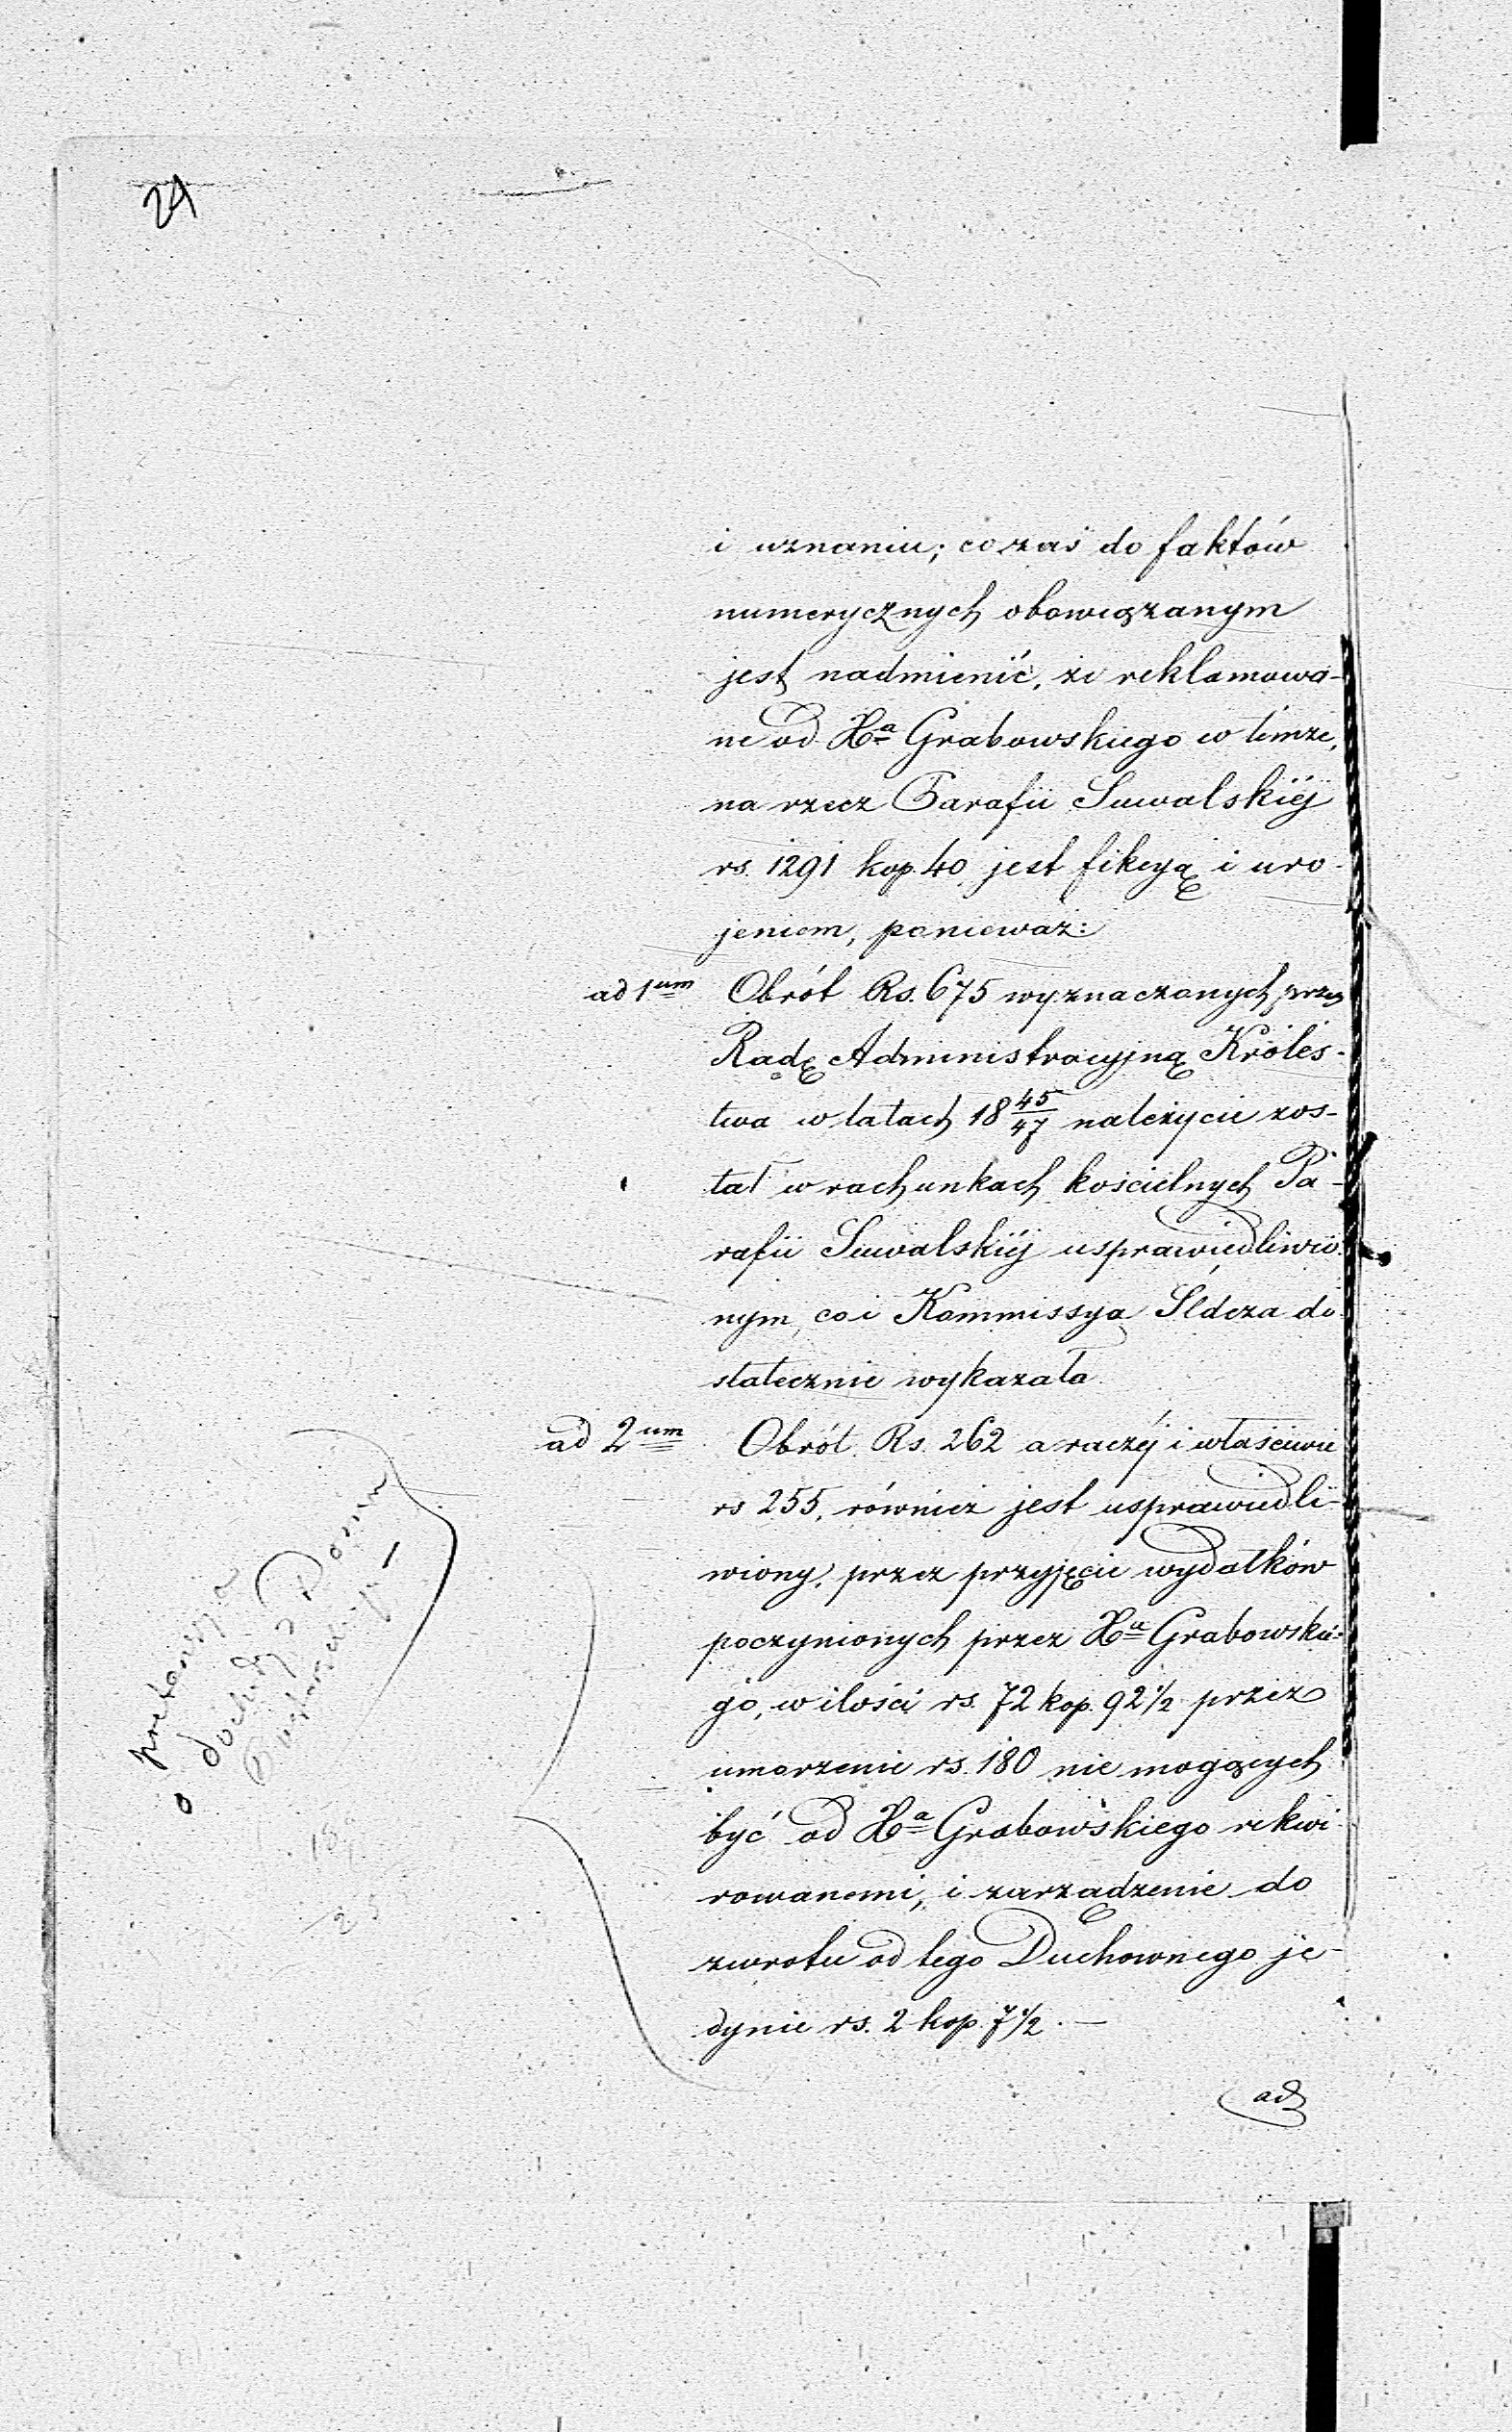 24
i uznaniu; co zaś do faktów
numerycznych obowiązanym
jest nadmienić, że reklamowa-
ne od Xa Grabowskiego w temże,
na rzecz Parafii Suwalskiéj
rs. 1291 kop. 40 jest fikcyą i uro-
jeniem, ponieważ:
ad 1um Obrót Rs. 675 wyznaczonych przez
Radę Administracyjną Króles-
twa w latach 18 45/47 należycie zos-
tał w rachunkach kościelnych Pa-
rafii Suwalskiéj usprawiedliwio-
nym, co i Kommissya Śldcza do
statecznie wykazała
ad 2um Obrót Rs. 262 a raczéj i właściwie
rs 255, również jest usprawiedli-
wiony, przez przyjęcie wydatków
poczynionych przez Xa Grabowskie-
go, w ilości rs. 72 kop. 92 1/2 przez
umorzenie rs. 180 nie mogących
być od Xa Grabowskiego rekwi-
rowanemi, i zarządzenie do
zwrotu od tego Duchownego je-
dynie rs. 2 kop. 7 1/2. —
ad
pretensya
o dochody z Domu